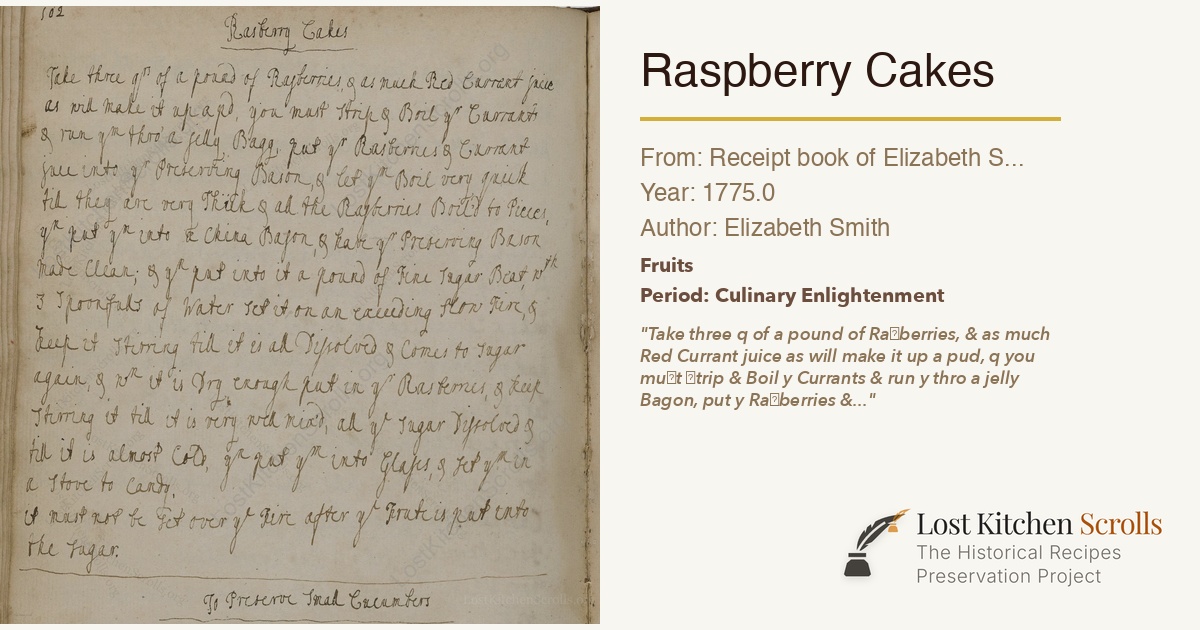 102
Rasberry Cakes
Take three qrs of a pound of Rasberries, & as much Red Currant juice
as will make it up a pd, you must Strip & Boil yr Currants
& run ym thro' a jelly Bagg, put yr Rasberries & Currant
juce into yr Preserving Bason, & let ym Boil very quick
till they are very Thick & all the Rasberries Boil'd to Pieces,
yn put ym into a China Bason, & have yr Preserving Bason
made Clean; & yn put into it a pound of Fine Sugar Beat, wth
3 Spoonfulls of Water set it on an exceeding slow Fire, &
keep it Stirring till it is all Dissolved & Comes to Sugar
again, & wn it is Dry enough put in yr Rasberries, & keep
Stirring it till it is very well mix'd, all ye Sugar Dissolved &
till it is almost Cold, yn put ym into Glases, & set ym in
a Stove to Candy.
it must not be Set over ye Fire after ye Frute is put into
the Sugar.
To Preserve Small Cucumbers
Raspberry Cakes
From: Receipt book of Elizabeth S...
Year: 1775.0
Author: Elizabeth Smith
Fruits
Period: Culinary Enlightenment
"Take three q of a pound of Ra▯berries, & as much
Red Currant juice as will make it up a pud, q you
mu▯t ▯trip & Boil y Currants & run y thro a jelly
Bagon, put y Ra▯berries &..."
Lost Kitchen Scrolls
The Historical Recipes
Preservation Project